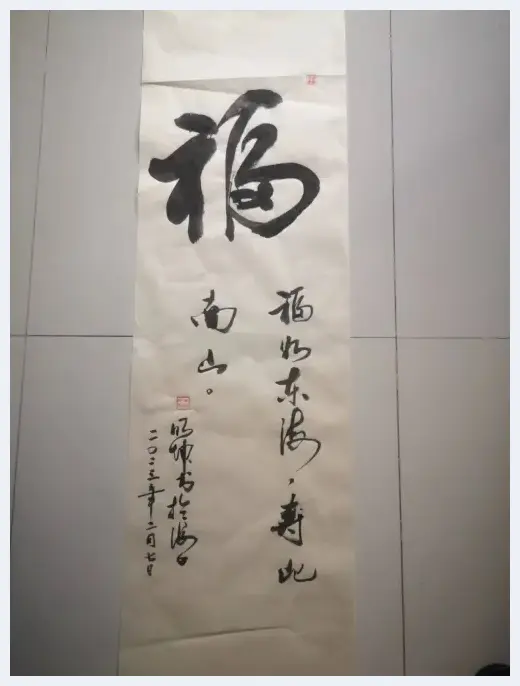 福
福如东海，寿比
南山。
明坤书于海口
二〇二三年二月七日